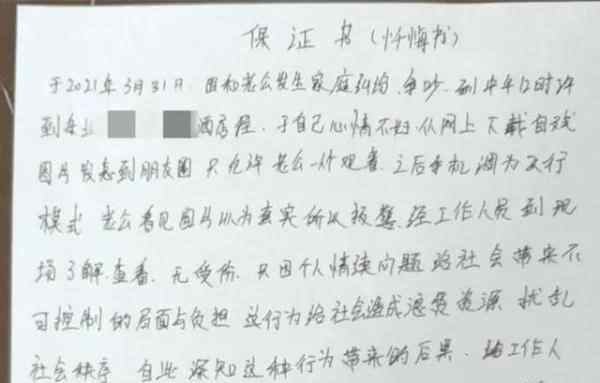 保证书(忏悔书)
于2021年3月31日 因和老公发生家庭纠纷.争吵.到中午12时许
到 酒店住.于自己心情不好.从网上下载自残
图片发表到朋友圈 只允许老公一个观看.之后手机调为飞行
模式 老公看见图片以为真实所以报警.经工作人员到现
场了解.查看.无受伤.只因个人情绪问题 给社会带来不
可控制的局面与负担 这行为给社会造成浪费资源 扰乱
社会秩序 自此深知这种行为带来的后果.给工作人